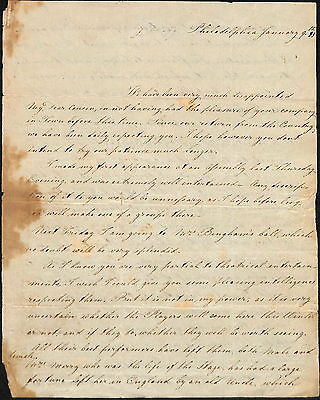 Philadelphia January 9th
We have been very much disappointed
My dear Cousin, in not having had the pleasure of your company
in Town before this time. Since our return from the Country,
we have been daily expecting you. I hope however you don't
intend to try our patience much longer.
I made my first appearance at an Assembly last Thursday
Evening, and was extremely well entertained — Any descrip-
tion of it to you would be unnecessary, as I hope before long,
you will make one of a groupe there —
Next Friday I am going to Mrs Bingham's ball, which
no doubt will be very splendid.
As I know you are very partial to theatrical entertain-
ments, I wish I could give you some pleasing intelligence
respecting them. But it is not in my power, as it is very
uncertain whether the Players will come here this Winter
or not, and if they do, whether they will be worth seeing.
All their best performers have left them, both Male and
female.
Mrs Merry who was the life of the Stage, has had a large
fortune left her in England by an old Uncle, which